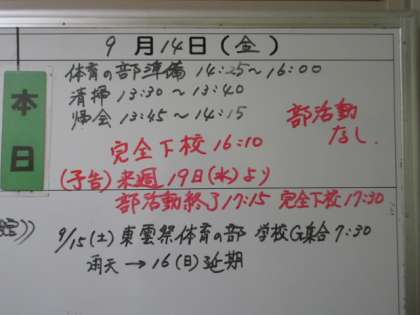 9月14日(金)
本日
体育の部準備 14:25〜16:00
清掃 13:30〜13:40
帰会 13:45〜14:15
部活動
なし.
完全下校 16:10
(予告) 来週19日(水)より
部活動終了17:15 完全下校17:30
9/15(土)東雲祭体育の部 学校G集合 7:30
雨天→16(日)延期